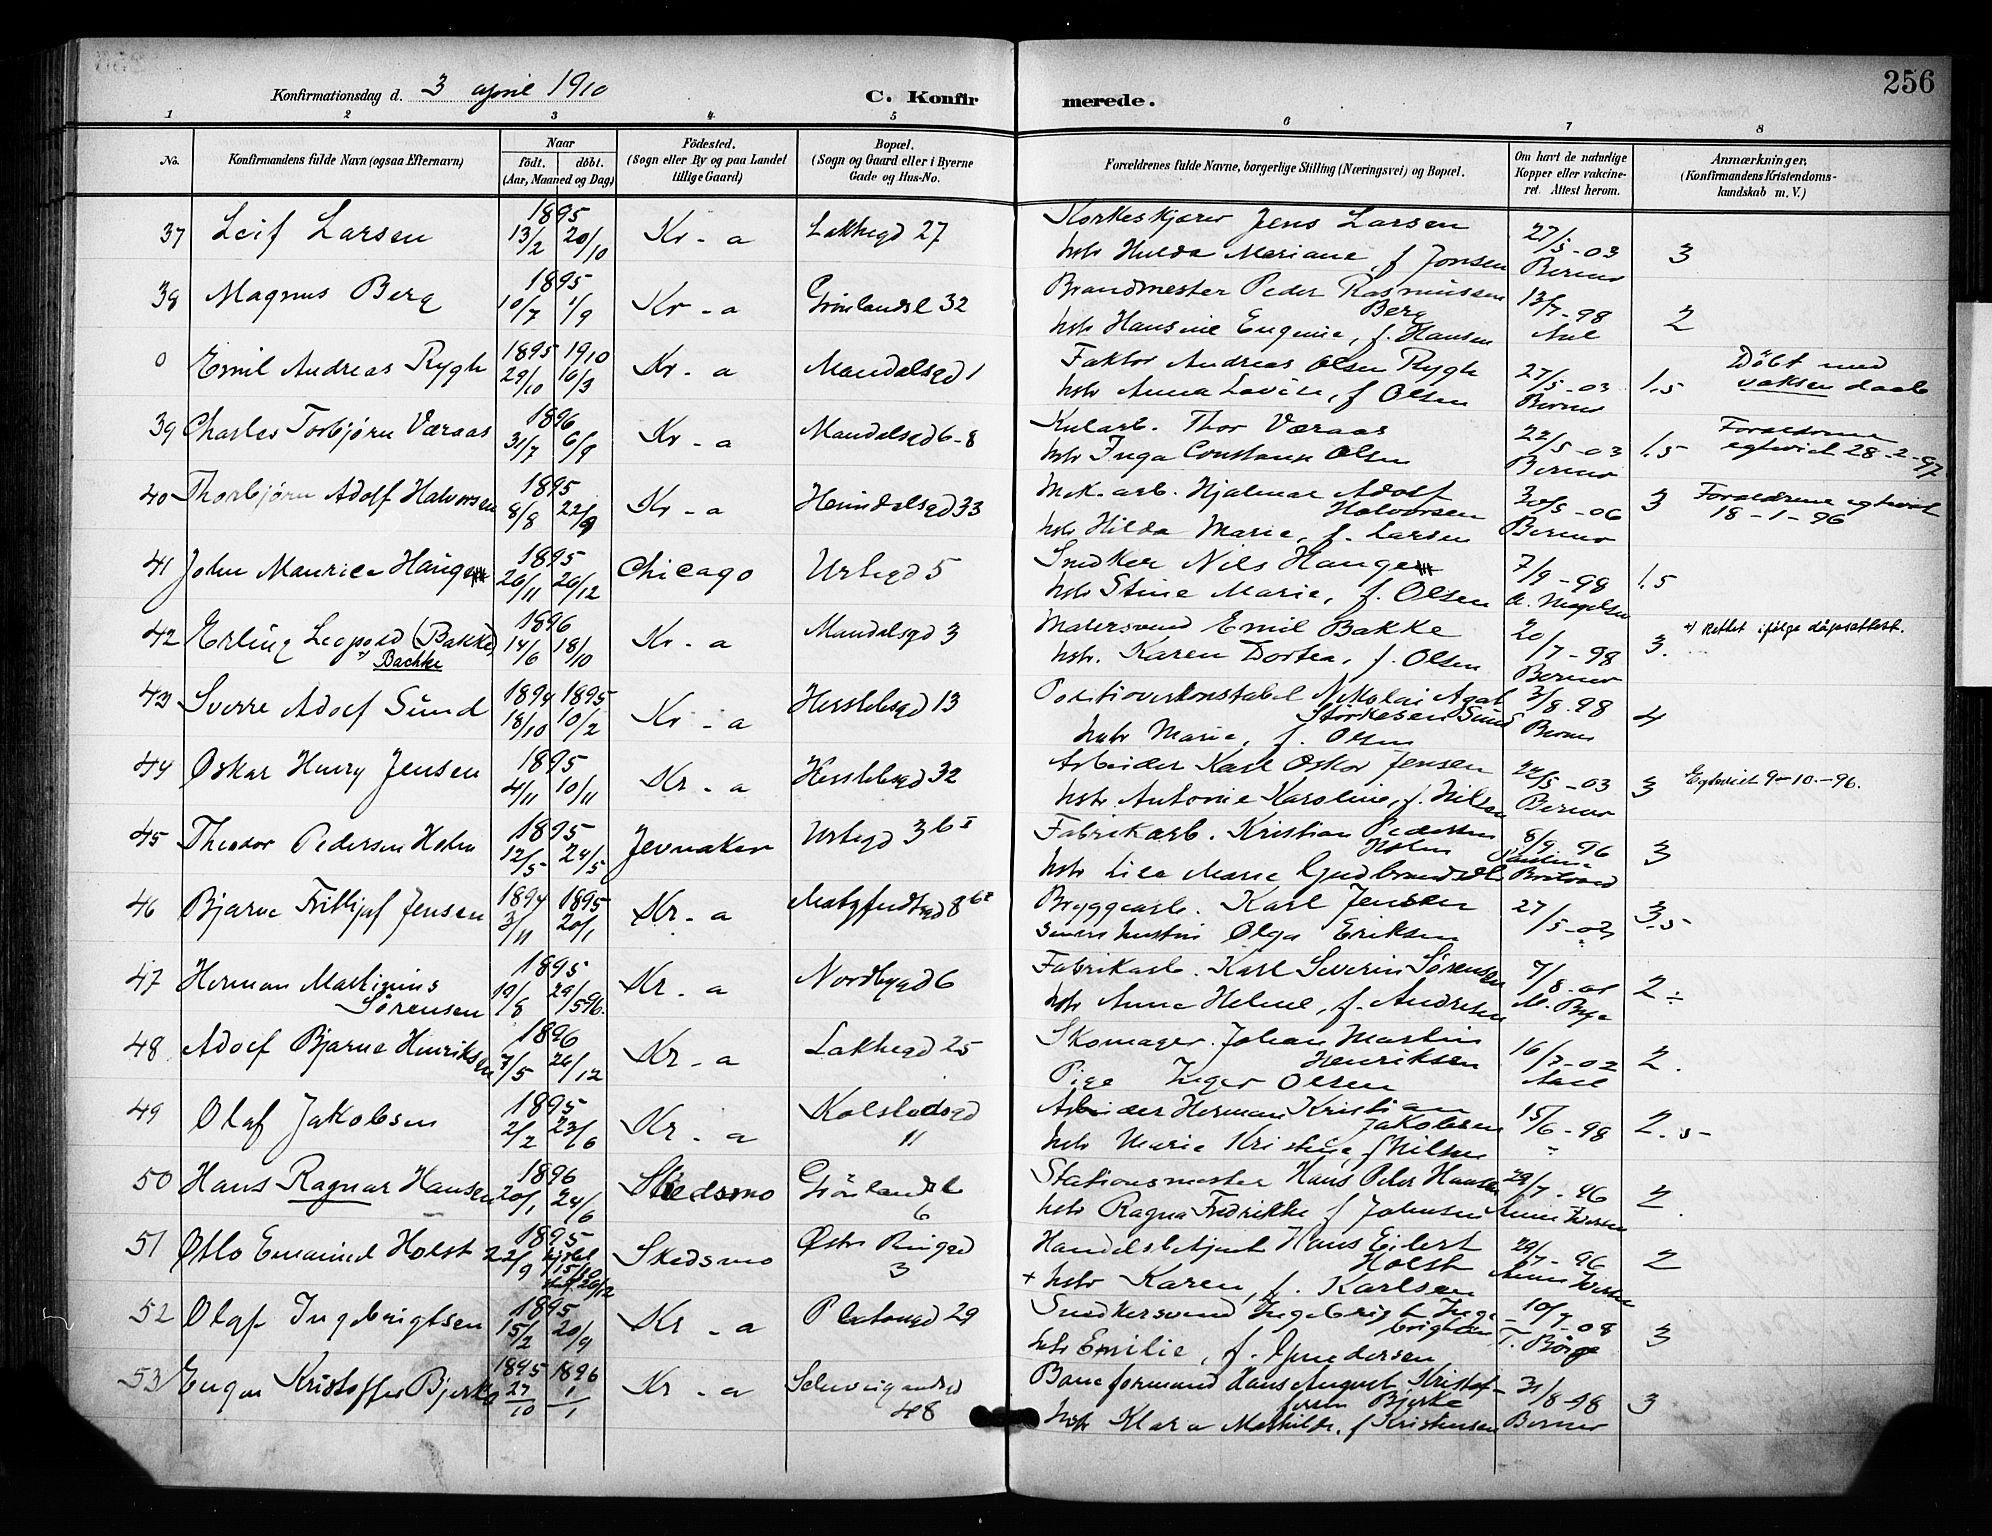 256
Konfirmationsdag d. 3 april 1910
C. Konfirmerede.
1 2 3 4 5 6 7 8
No. Konfirmandens fulde Navn (ogsaa Efternavn) Naar født. døbt. (Aar, Maaned og Dag) Födested. (Sogn eller By og paa Landet tillige Gaard) Bopæl. (Sogn og Gaard eller i Byerne Gade og Hus-No. Forældrenes fulde Navne, borgerlige Stilling (Næringsvei) og Bopæl. Om havt de naturlige Kopper eller vaccineret. Attest herom. Anmærkninger. (Konfirmandens Kristendomskundskab m. V.)
37 Leif Larsen 1895 13/2 20/10 Kr-a Lakkegd 27 Korkeskjærer Jens Larsen
hstr Hulda Mariane, f. Jonsen 27/5-03 Berner 3
38 Magnus Berg 1895 10/7 1/9 Kr-a Grönlandsl 32 Brandmester Peder Rasmussen Berg
hstr Hansine Eugenie, f. Hansen 13/7-98 2
0 Emil Andreas Rygh 1895 29/10 1910 16/3 Kr-a Mandalsgd 1 Faktor Andreas Olsen Rygh
hstr Anna Lovise, f Olsen 27/5-03 Berner 1.5 Döbt med voksen daab
39 Charles Torbjørn Væraas 1896 31/7 6/9 Kr-a Mandalsgd 6-8 Kularb. Thor Væraas
hstr Inga Constanse Olsen 22/5-03 Berner 1.5 Forældrene egteviet 28-2-97
40 Thorbjørn Adolf Halvorsen 1895 8/8 22/9 Kr-a Heimdalsgd 33 Mek. arb. Hjalmar Adolf Halvorsen
hstr Hilda Marie, f. Larsen 30/5-06 Berner 3 Forældrene egteviet 18-1-96
41 John Maurice Hauge 1895 26/11 26/12 Chicago Urtegd 5 Snedker Nils Hauge
hstr Stine Marie, f. Olsen 7/9-98 1.5
42 Erling Leopold (Bakke) x) Bachke 1896 14/6 18/10 Kr-a Mandalsgd 3 Malersvend Emil Bakke
hstr. Karen Dortea, f. Olsen 20/7-98 Berner 3. x) Rettet ifølge dåpsattest.
43 Sverre Adolf Sund 1894 18/10 1895 10/2 Kr-a Herslebsgd 13 Politioverkonstabel Nikolai Agat Størkesen Sund
hstr Marie, f. Olsen 3/8.98 Berner 4
44 Oskar Henry Jensen 1895 4/11 10/11 Kr-a Herslebsgd 32 Arbeider Karl Oskar Jensen
hstr Antonie Karoline, f. Nilsen 22/5-03 Berner 3 Egteviet 9-10-96.
45 Theodor Pedersen Holm 1895 12/5 24/5 Jevnaker Urtegd 3 b I Fabrikarb. Kristian Pedersen Holm
hstr Lise Marie Gudbrandsdtr 8/9 96 3
46 Bjarne Fritjof Jensen 1894 3/11 1895 20/1 Kr-a Bryggearb. Karl Jensen
Olga Eriksen 27/5-03 3-5
47 Herman Martinius Sörensen 1895 19/8 29/5 96. Kr-a Nordbygd 6 Fabrikarb. Karl Severin Sörensen
hstr Anna Helene, f. Andresen 7/8-01 M. Bye 2 ÷
48 Adolf Bjarne Henriksen 1896 7/5 26/12 Kr-a Lakkegd 25 Skomager. Johan Martin Henriksen
Pige Inger Olsen 16/7-02 2.
49 Olaf Jakobsen 1895 2/2 23/6 Kr-a Kolstadsgd 11 Arbeider Herman Kristian Jakobsen
hstr Marie Kristine, f Nilsen 15/6-98 2.5-
50 Hans Ragnar Hansen 1896 20/1 24/6 Skedsmo Grönlandsl 6 Stationsmester Hans Peter Hansen
hstr Ragna Fredrikke f Johnsen 29/7-96 2.
51 Otto Emanuel Holst 1895 22/9 hjdbt 15/10 26/12 Skedsmo Østre Ringgd 3 Handelsbetjent Hans Eilert Holst
+ hstr Karen, f. Karlsen 29/7-96 2
52 Olaf Ingebrigtsen 1895 15/2 20/9 Kr-a Platougd 29 Snedkersvend Ingebrigt Ingebrigtsen
hstr Emilie, f. Gundersen 10/7-08 T. Börge 3
53 Eugen Kristoffer Bjerke 1895 27/10 1896 1/1 Kr-a Schweigaardsgd 48 Baneformand Hans August Kristoffersen Bjerke
hstr Klara Mathilde, f Kristensen 31/8-98 Berner 3